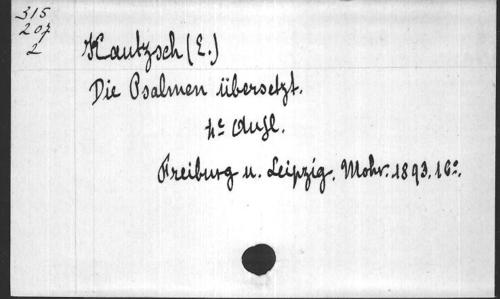 315
207
2
Kautzsch (E.)
Die Psalmen übersetzt.
4e Aufl.
Freiburg u. Leipzig. Mohr. 1893. 16o.